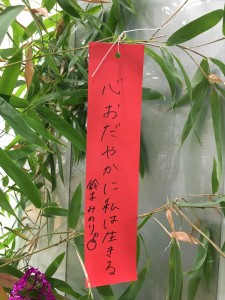 心おだやかに私は生きる
鈴木みのり